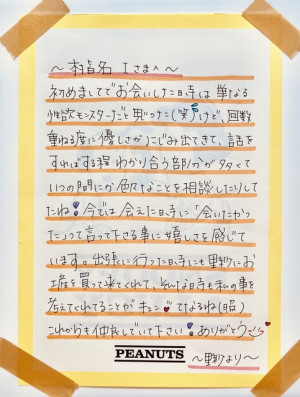 ～本指名 Iさまへ～
初めましてでお会いした時は 単なる
性欲モンスターだと思ってた(笑)けど、回数
重ねる度に優しさがにじみ出てきて、話を
すればする程 わかり合う部分が多くて
いつの間にか色々なことを相談したりして
たね!今では会えた時に「会いたかっ
た」って言って下さる事に嬉しさを感じて
います。出張に行った時にも里紗にお
土産を買って来てくれて、そんな時も私の事を
考えてくれてることがキュンってなるよね(照)
これからも仲良しでいて下さい!ありがとう
PEANUTS
～里紗より～